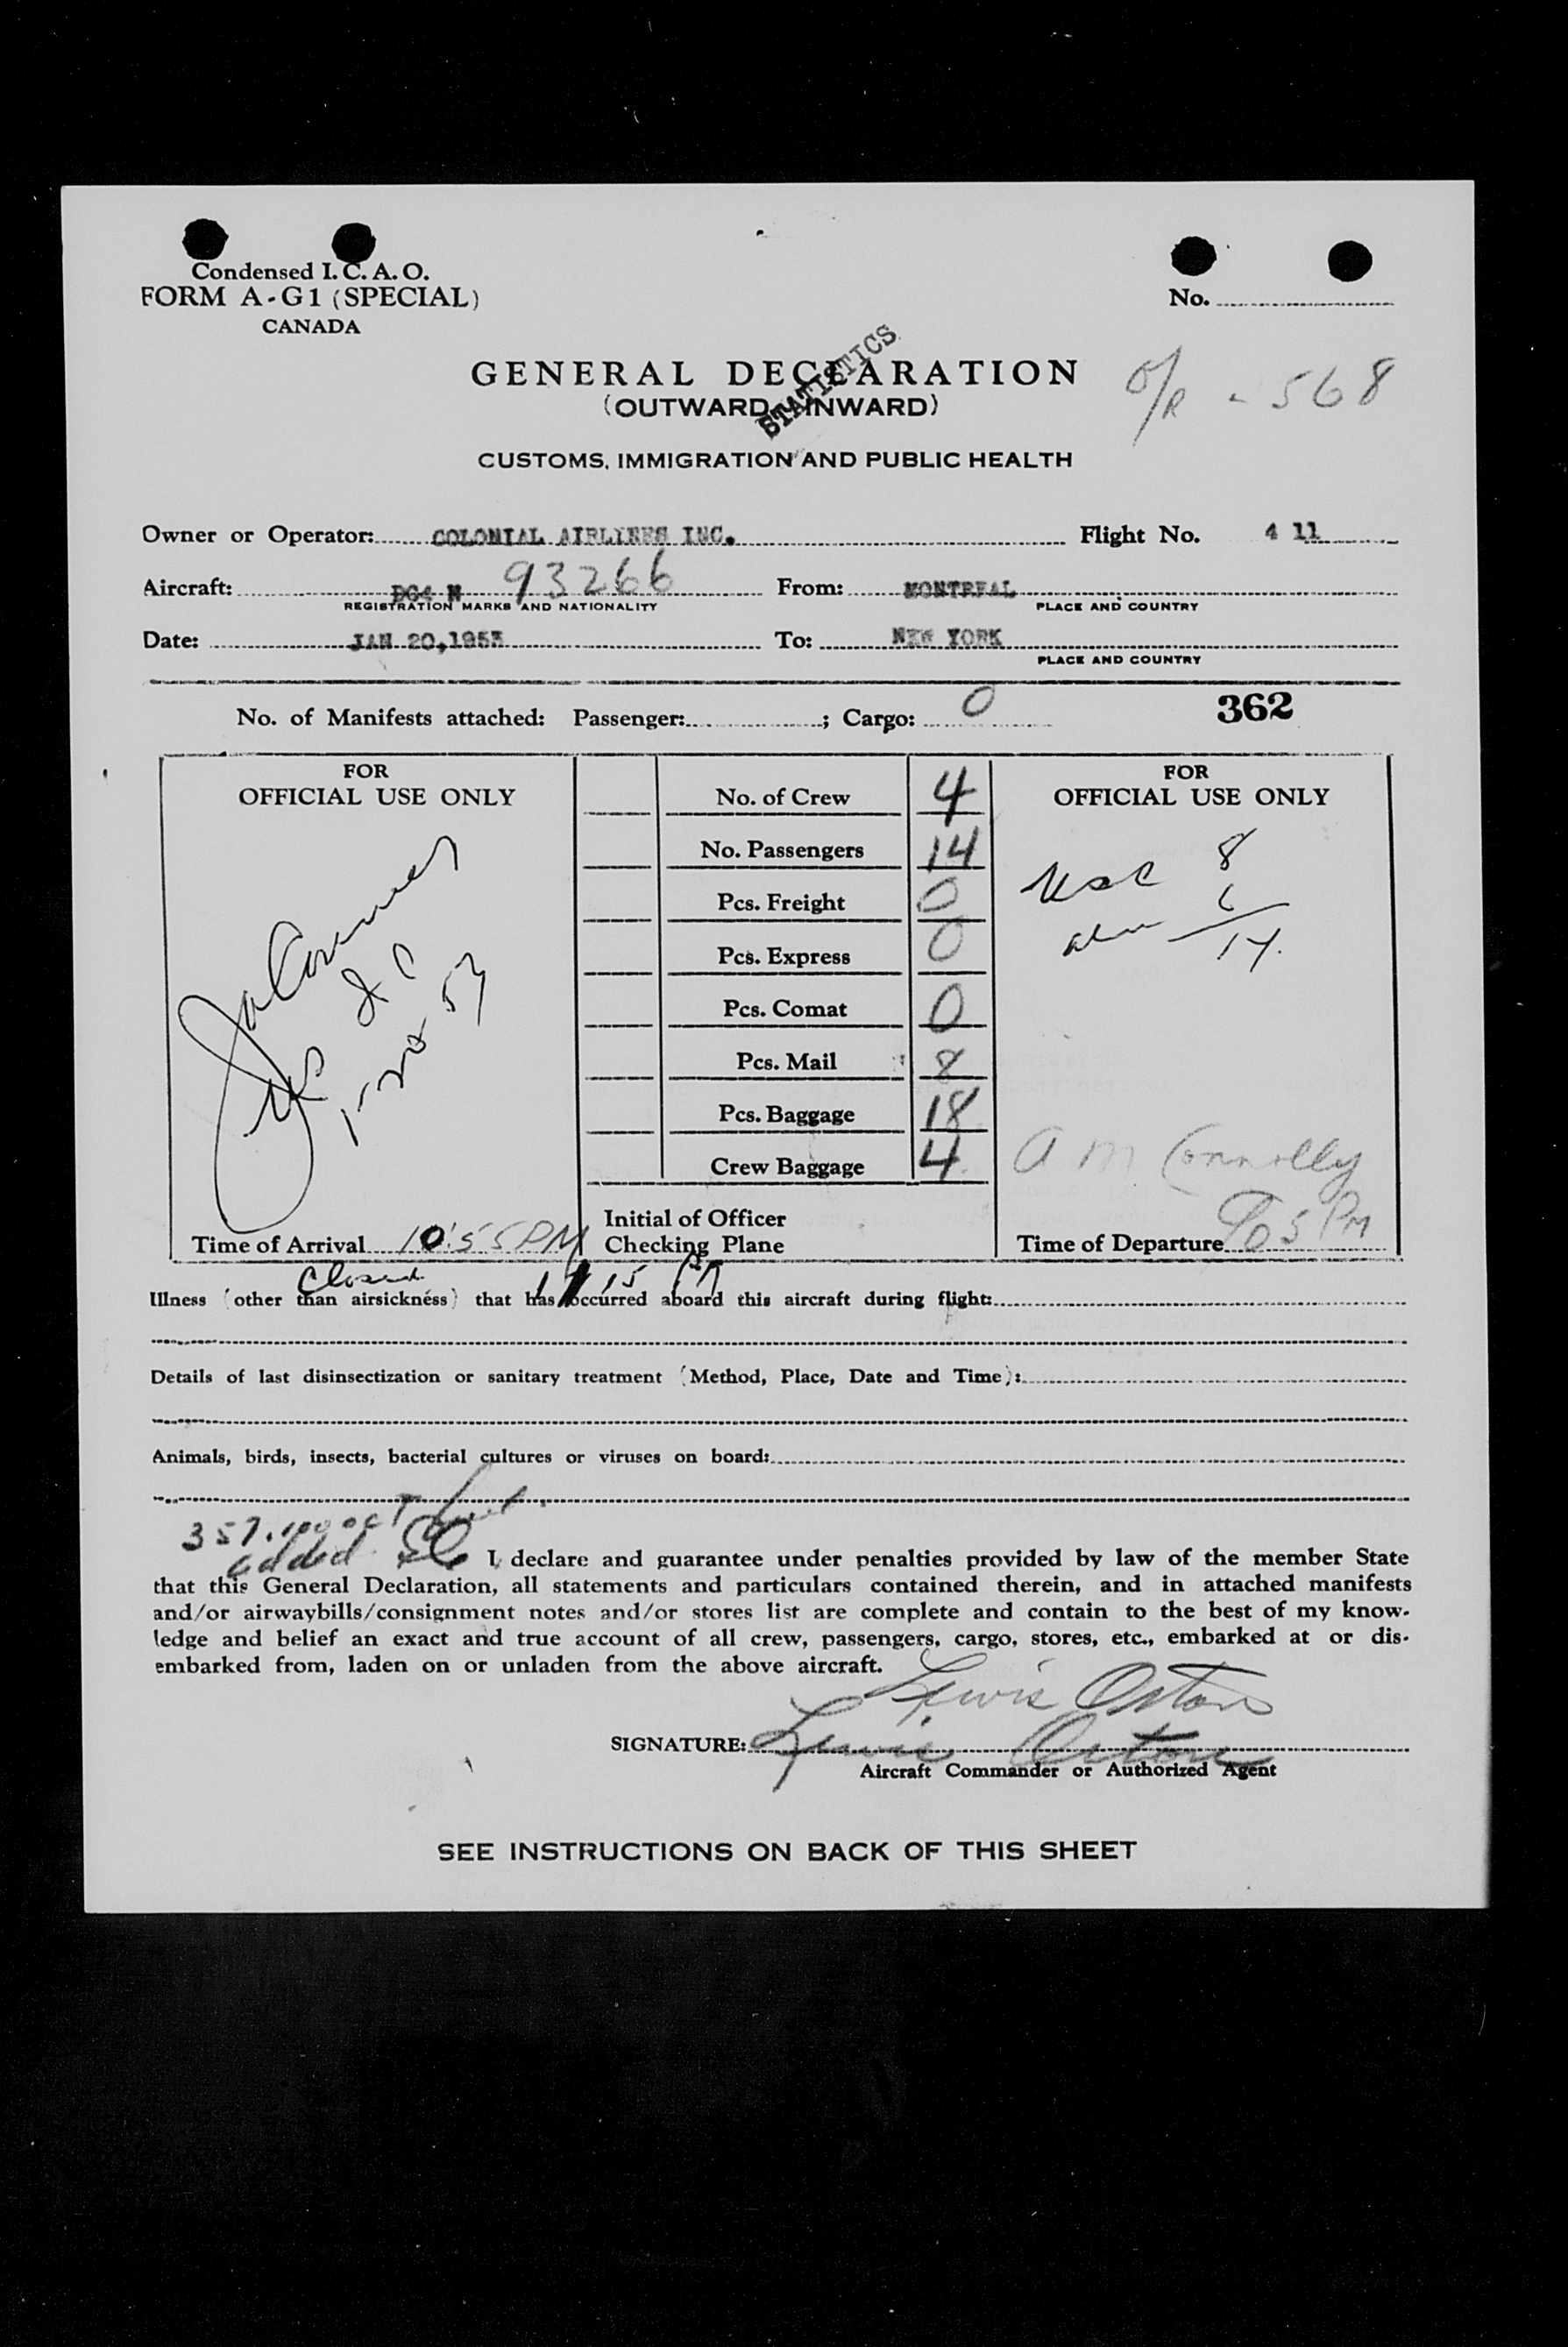 Condensed I. C. A. O.
FORM A-G1 (SPECIAL)
CANADA
No.
STATISTICS
GENERAL DECLARATION
(OUTWARD INWARD)
O/R - 568
CUSTOMS, IMMIGRATION AND PUBLIC HEALTH
Owner or Operator: COLONIAL AIRLINES INC. Flight No. 4 11
Aircraft: DC4 N 93266 From: MONTREAL
REGISTRATION MARKS AND NATIONALITY PLACE AND COUNTRY
Date: JAN 20,1953 To: NEW YORK
PLACE AND COUNTRY
No. of Manifests attached: Passenger: ; Cargo: 0 362
FOR
OFFICIAL USE ONLY
1-20-53
Time of Arrival 10:55 PM
No. of Crew 4
No. Passengers 14
Pcs. Freight 0
Pcs. Express 0
Pcs. Comat 0
Pcs. Mail 8
Pcs. Baggage 18
Crew Baggage 4
Initial of Officer
Checking Plane
FOR
OFFICIAL USE ONLY
USC 8
6
14.
A M Connolly
Time of Departure 905 PM
Closed 15
Illness (other than airsickness) that has occurred aboard this aircraft during flight:
Details of last disinsectization or sanitary treatment (Method, Place, Date and Time):
Animals, birds, insects, bacterial cultures or viruses on board:
357. 100 oct fuel
added
I, declare and guarantee under penalties provided by law of the member State
that this General Declaration, all statements and particulars contained therein, and in attached manifests
and/or airwaybills/consignment notes and/or stores list are complete and contain to the best of my know-
ledge and belief an exact and true account of all crew, passengers, cargo, stores, etc., embarked at or dis-
embarked from, laden on or unladen from the above aircraft.
Lewis Orton
SIGNATURE: Lewis Orton
Aircraft Commander or Authorized Agent
SEE INSTRUCTIONS ON BACK OF THIS SHEET